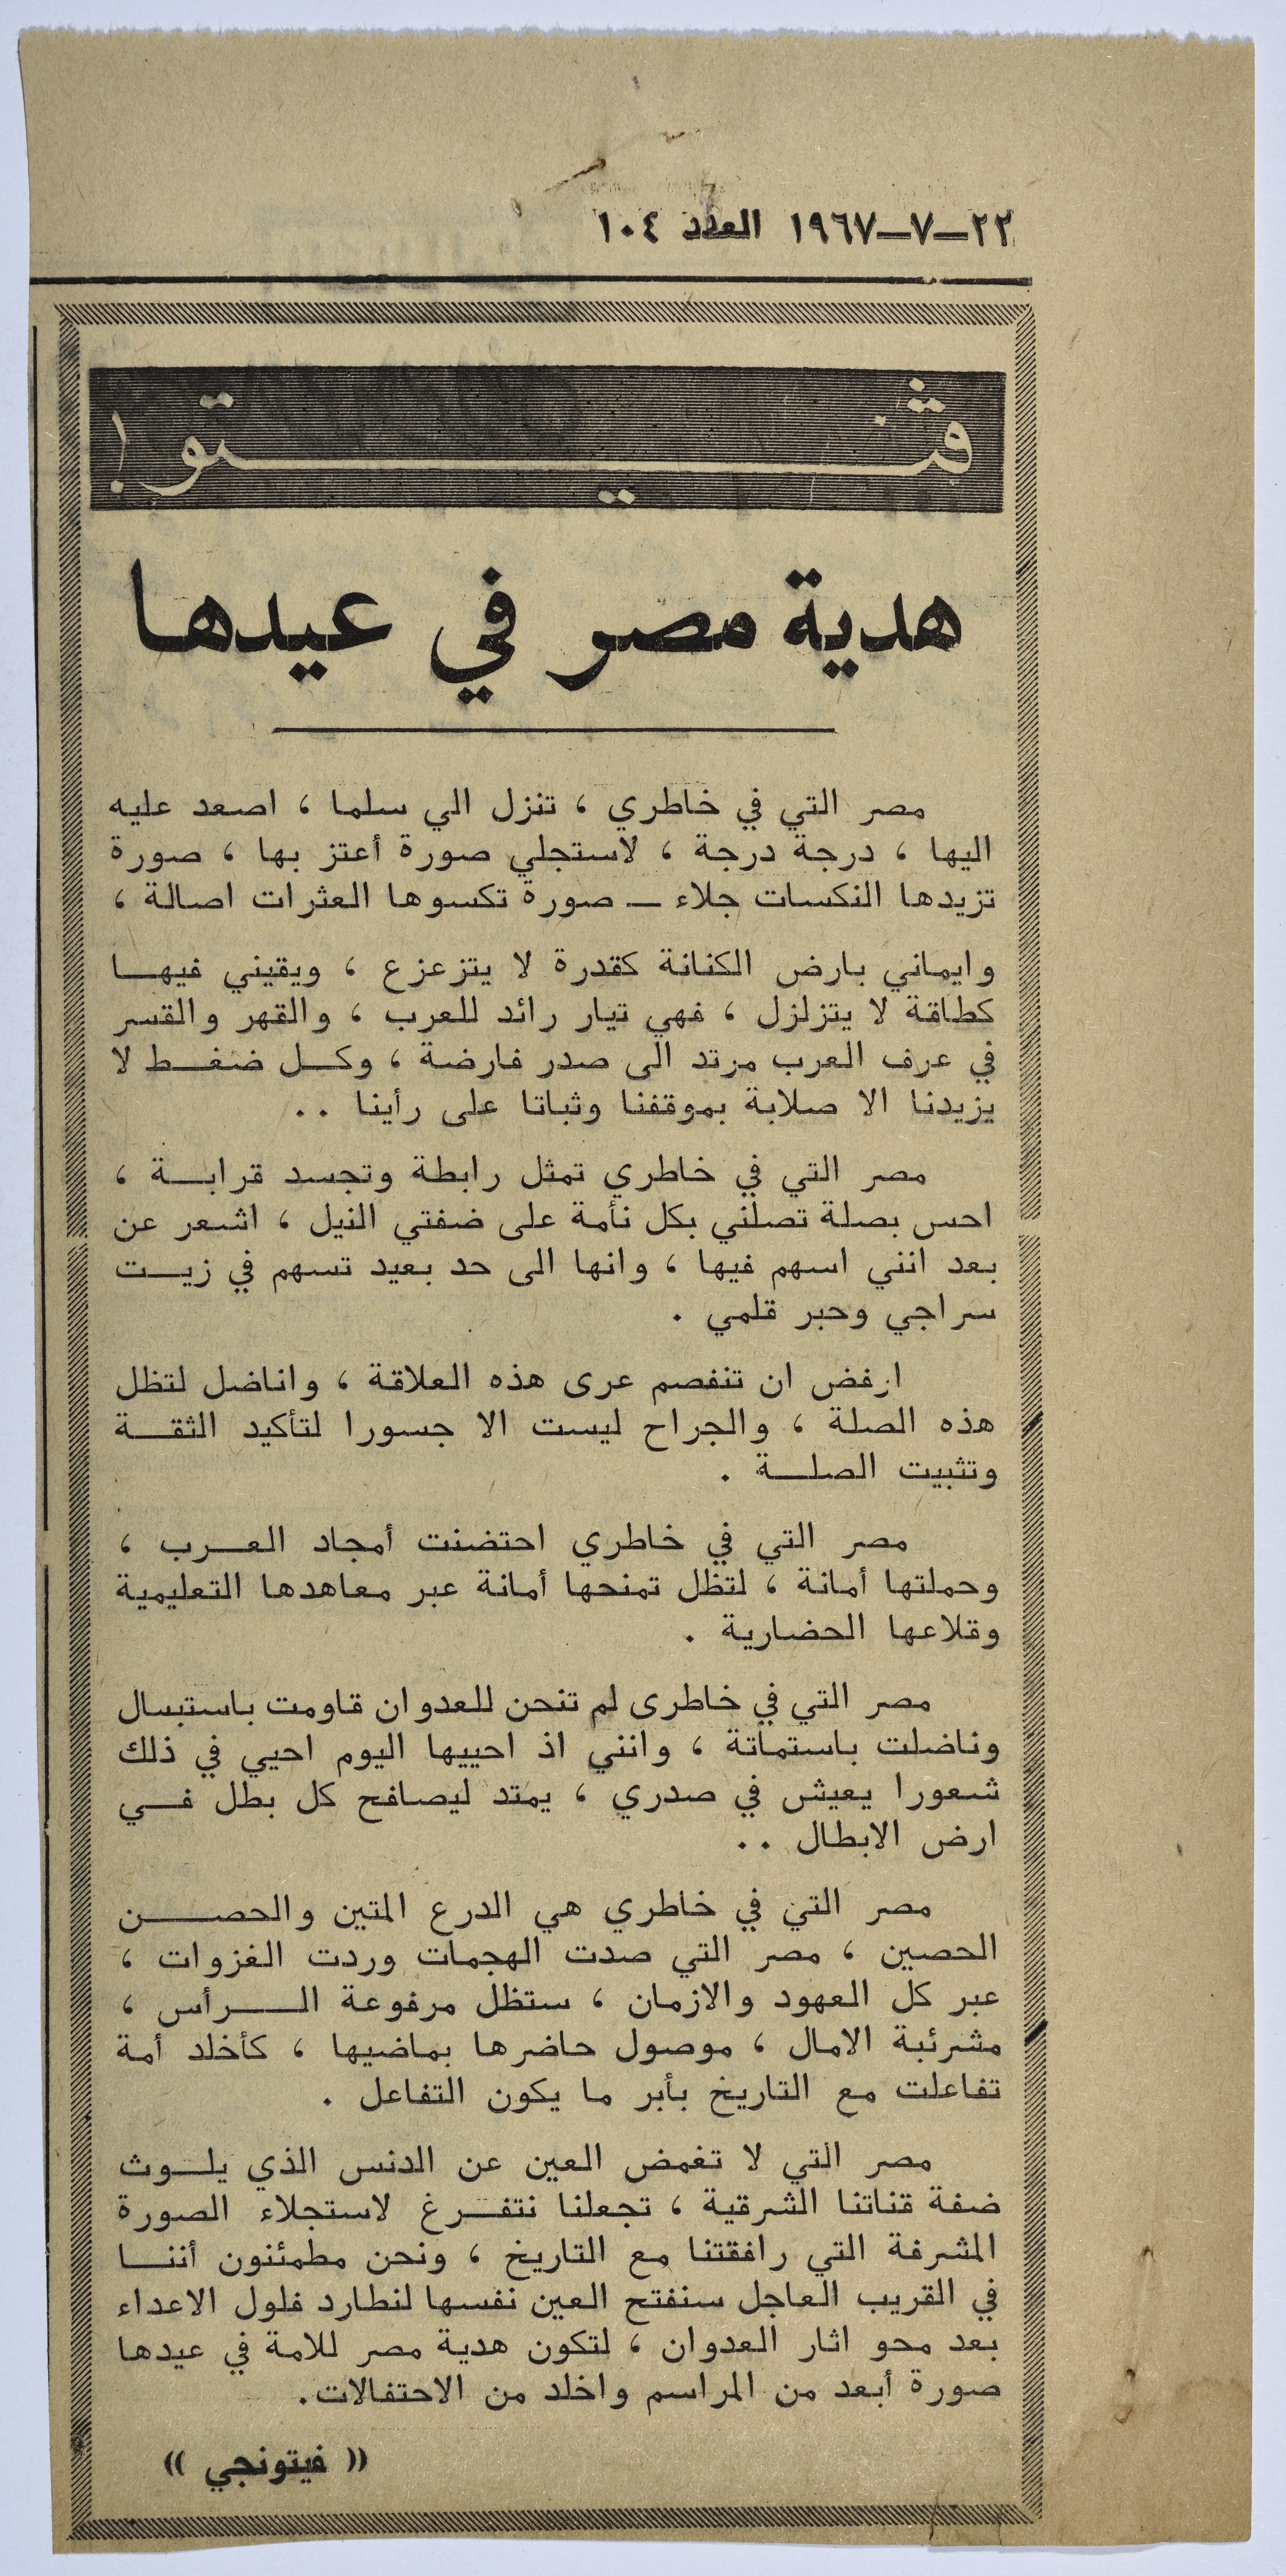 ٢٢–٧–١٩٦٧ العدد ١٠٤
ڤيتو !
هدية مصر في عيدها
مصر التي في خاطري ، تنزل الي سلما ، اصعد عليه
اليها ، درجة درجة ، لاستجلي صورة أعتز بها ، صورة
تزيدها النكسات جلاء – صورة تكسوها العثرات اصالة ،
وايماني بارض الكنانة كقدرة لا يتزعزع ، ويقيني فيها
كطاقة لا يتزلزل ، فهي تيار رائد للعرب ، والقهر والقسر
في عرف العرب مرتد الى صدر فارضة ، وكل ضغط لا
يزيدنا الا صلابة بموقفنا وثباتا على رأينا ..
مصر التي في خاطري تمثل رابطة وتجسد قرابة ،
احس بصلة تصلني بكل نأمة على ضفتي النيل ، اشعر عن
بعد انني اسهم فيها ، وانها الى حد بعيد تسهم في زيت
سراجي وحبر قلمي .
ارفض ان تنفصم عرى هذه العلاقة ، واناضل لتظل
هذه الصلة ، والجراح ليست الا جسورا لتأكيد الثقة
وتثبيت الصلة .
مصر التي في خاطري احتضنت أمجاد العرب ،
وحملتها أمانة ، لتظل تمنحها أمانة عبر معاهدها التعليمية
وقلاعها الحضارية .
مصر التي في خاطرى لم تنحن للعدوان قاومت باستبسال
وناضلت باستماتة ، وانني اذ احييها اليوم احيي في ذلك
شعورا يعيش في صدري ، يمتد ليصافح كل بطل في
ارض الابطال ..
مصر التي في خاطري هي الدرع المتين والحصن
الحصين ، مصر التي صدت الهجمات وردت الغزوات ،
عبر كل العهود والازمان ، ستظل مرفوعة الرأس ،
مشرئبة الامال ، موصول حاضرها بماضيها ، كأخلد أمة
تفاعلت مع التاريخ بأبر ما يكون التفاعل .
مصر التي لا تغمض العين عن الدنس الذي يلوث
ضفة قناتنا الشرقية ، تجعلنا نتفرغ لاستجلاء الصورة
المشرفة التي رافقتنا مع التاريخ ، ونحن مطمئنون أننا
في القريب العاجل سنفتح العين نفسها لنطارد فلول الاعداء
بعد محو اثار العدوان ، لتكون هدية مصر للامة في عيدها
صورة أبعد من المراسم واخلد من الاحتفالات.
(( فيتونجي ))